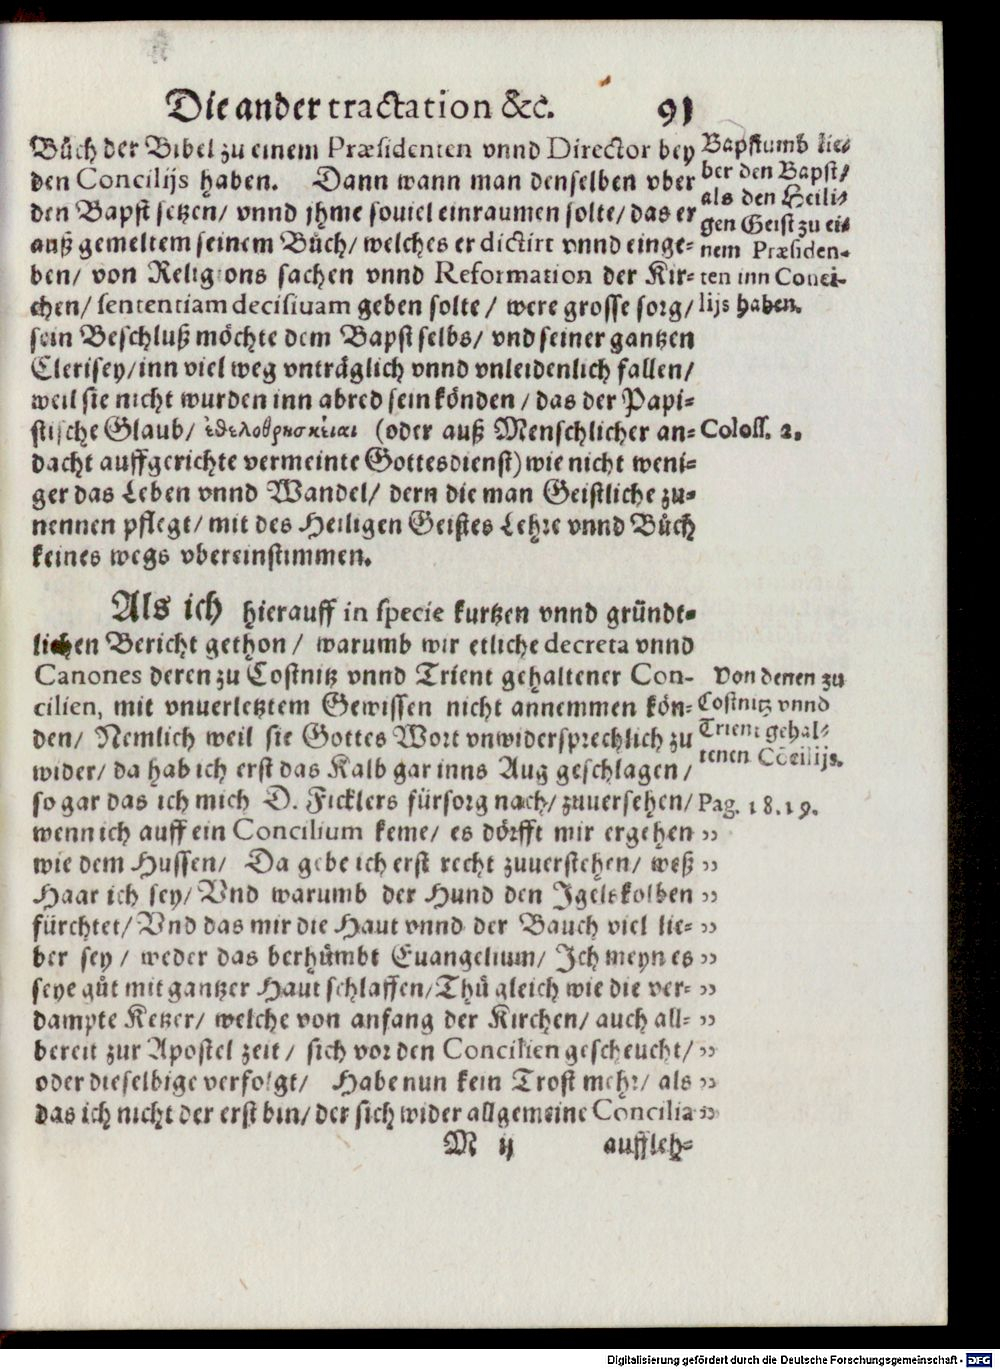 Die ander tractation &c. 91
Bůch der Bibel zu einem Præsidenten vnnd Director bey
den Concilijs haben. Dann wann man denselben vber
den Bapst setzen/ vnnd jhme souiel einraumen solte/ das er
auß gemeltem seinem Bůch/ welches er dictirt vnnd einge-
ben/ von Religions sachen vnnd Reformation der Kir-
chen/ sententiam decisiuam geben solte/ were grosse sorg/
sein Beschluß möchte dem Bapst selbs/ vnd seiner gantzen
Clerisey/ inn viel weg vnträglich vnnd vnleidenlich fallen/
weil sie nicht wurden inn abred sein könden/ das der Papi-
stische Glaub/ ἐθελοθρησκείαι (oder auß Menschlicher an-
dacht auffgerichte vermeinte Gottesdienst) wie nicht weni-
ger das Leben vnnd Wandel/ dern die man Geistliche zu-
nennen pflegt/ mit des Heiligen Geistes Lehre vnnd Bůch
keines wegs vbereinstimmen.
Bapstumb lie-
ber den Bapst/
als den Heili-
gen Geist zu ei-
nem Præsiden-
ten inn Conci-
lijs haben.
Coloss. 2.
Als ich hierauff in specie kurtzen vnnd gründt-
lichen Bericht gethon/ warumb wir etliche decreta vnnd
Canones deren zu Costnitz vnnd Trient gehaltener Con-
cilien, mit vnuerletztem Gewissen nicht annemmen kön-
den/ Nemlich weil sie Gottes Wort vnwidersprechlich zu
wider/ da hab ich erst das Kalb gar inns Aug geschlagen/
so gar das ich mich D. Ficklers fürsorg nach/ zuuersehen/
wenn ich auff ein Concilium keme/ es dörfft mir ergehen ,,
wie dem Hussen/ Da gebe ich erst recht zuuerstehen/ weß ,,
Haar ich sey/ Vnd warumb der Hund den Igelskolben ,,
fürchtet/ Vnd das mir die Haut vnnd der Bauch viel lie- ,,
ber sey/ weder das berhůmbt Euangelium/ Ich meyn es ,,
seye gůt mit gantzer Haut schlaffen/ Thů gleich wie die ver- ,,
dampte Ketzer/ welche von anfang der Kirchen/ auch all- ,,
bereit zur Apostel zeit/ sich vor den Concilien gescheucht/ ,,
oder dieselbige verfolgt/ Habe nun kein Trost mehr/ als ,,
das ich nicht der erst bin/ der sich wider allgemeine Concilia ,,
Von denen zu
Costnitz vnnd
Trient gehal-
tenen Cōcilijs.
Pag. 18. 19.
M ij auffleh-
Digitalisierung gefördert durch die Deutsche Forschungsgemeinschaft - DFG